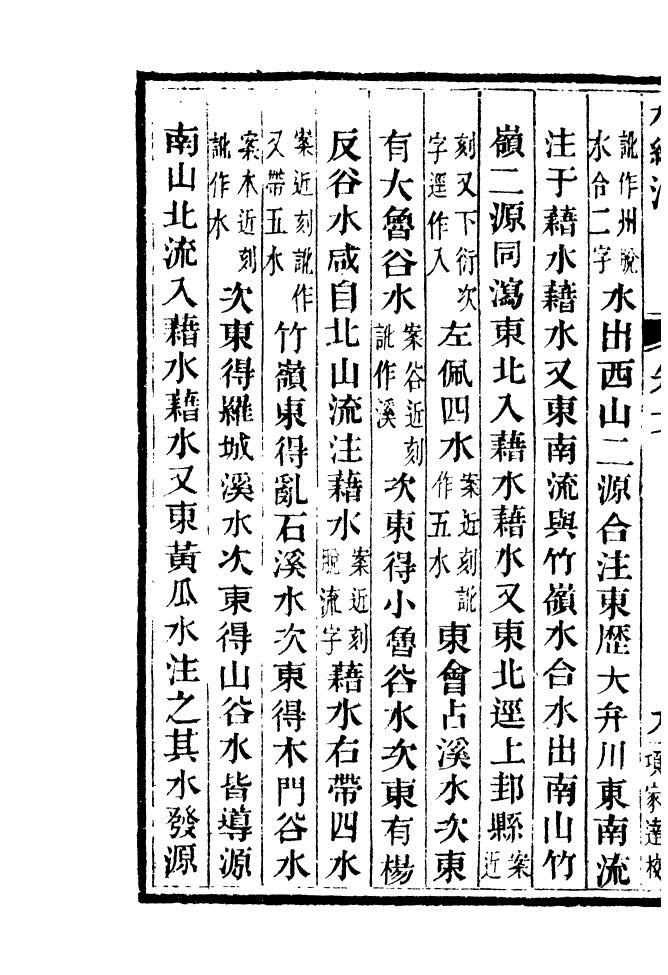 項家達校
訛作州脫水合二字水出西山二源合注東歷大弁川東南流
注于藉水藉水又東南流與竹嶺水合水出南山竹
嶺二源同瀉東北入藉水藉水又東北逕上邽縣案近
刻又下衍次字逕作入左佩四水案近刻訛作五水東會占溪水次東
有大魯谷水案谷近刻訛作溪次東得小魯谷水次東有楊
反谷水咸自北山流注藉水案近刻脫流字藉水右帶四水
案近刻訛作又帶五水竹嶺東得亂石溪水次東得木門谷水
案木近刻訛作水次東得羅城溪水次東得山谷水皆導源
南山北流入藉水藉水又東黃瓜水注之其水發源